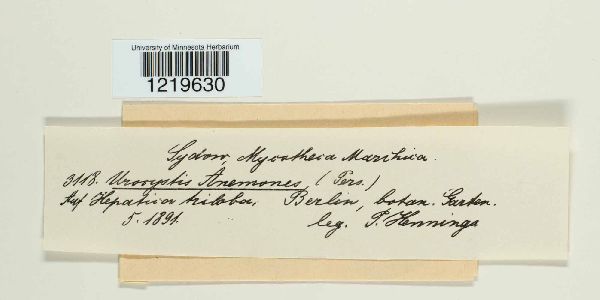 University of Minnesota Herbarium
1219630
Sydow, Mycotheca Marchica.
3118. Urocystis Anemones, (Pers.)
Auf Hepatica triloba, Berlin, botan. Garten.
5. 1891. leg. P. Hennings